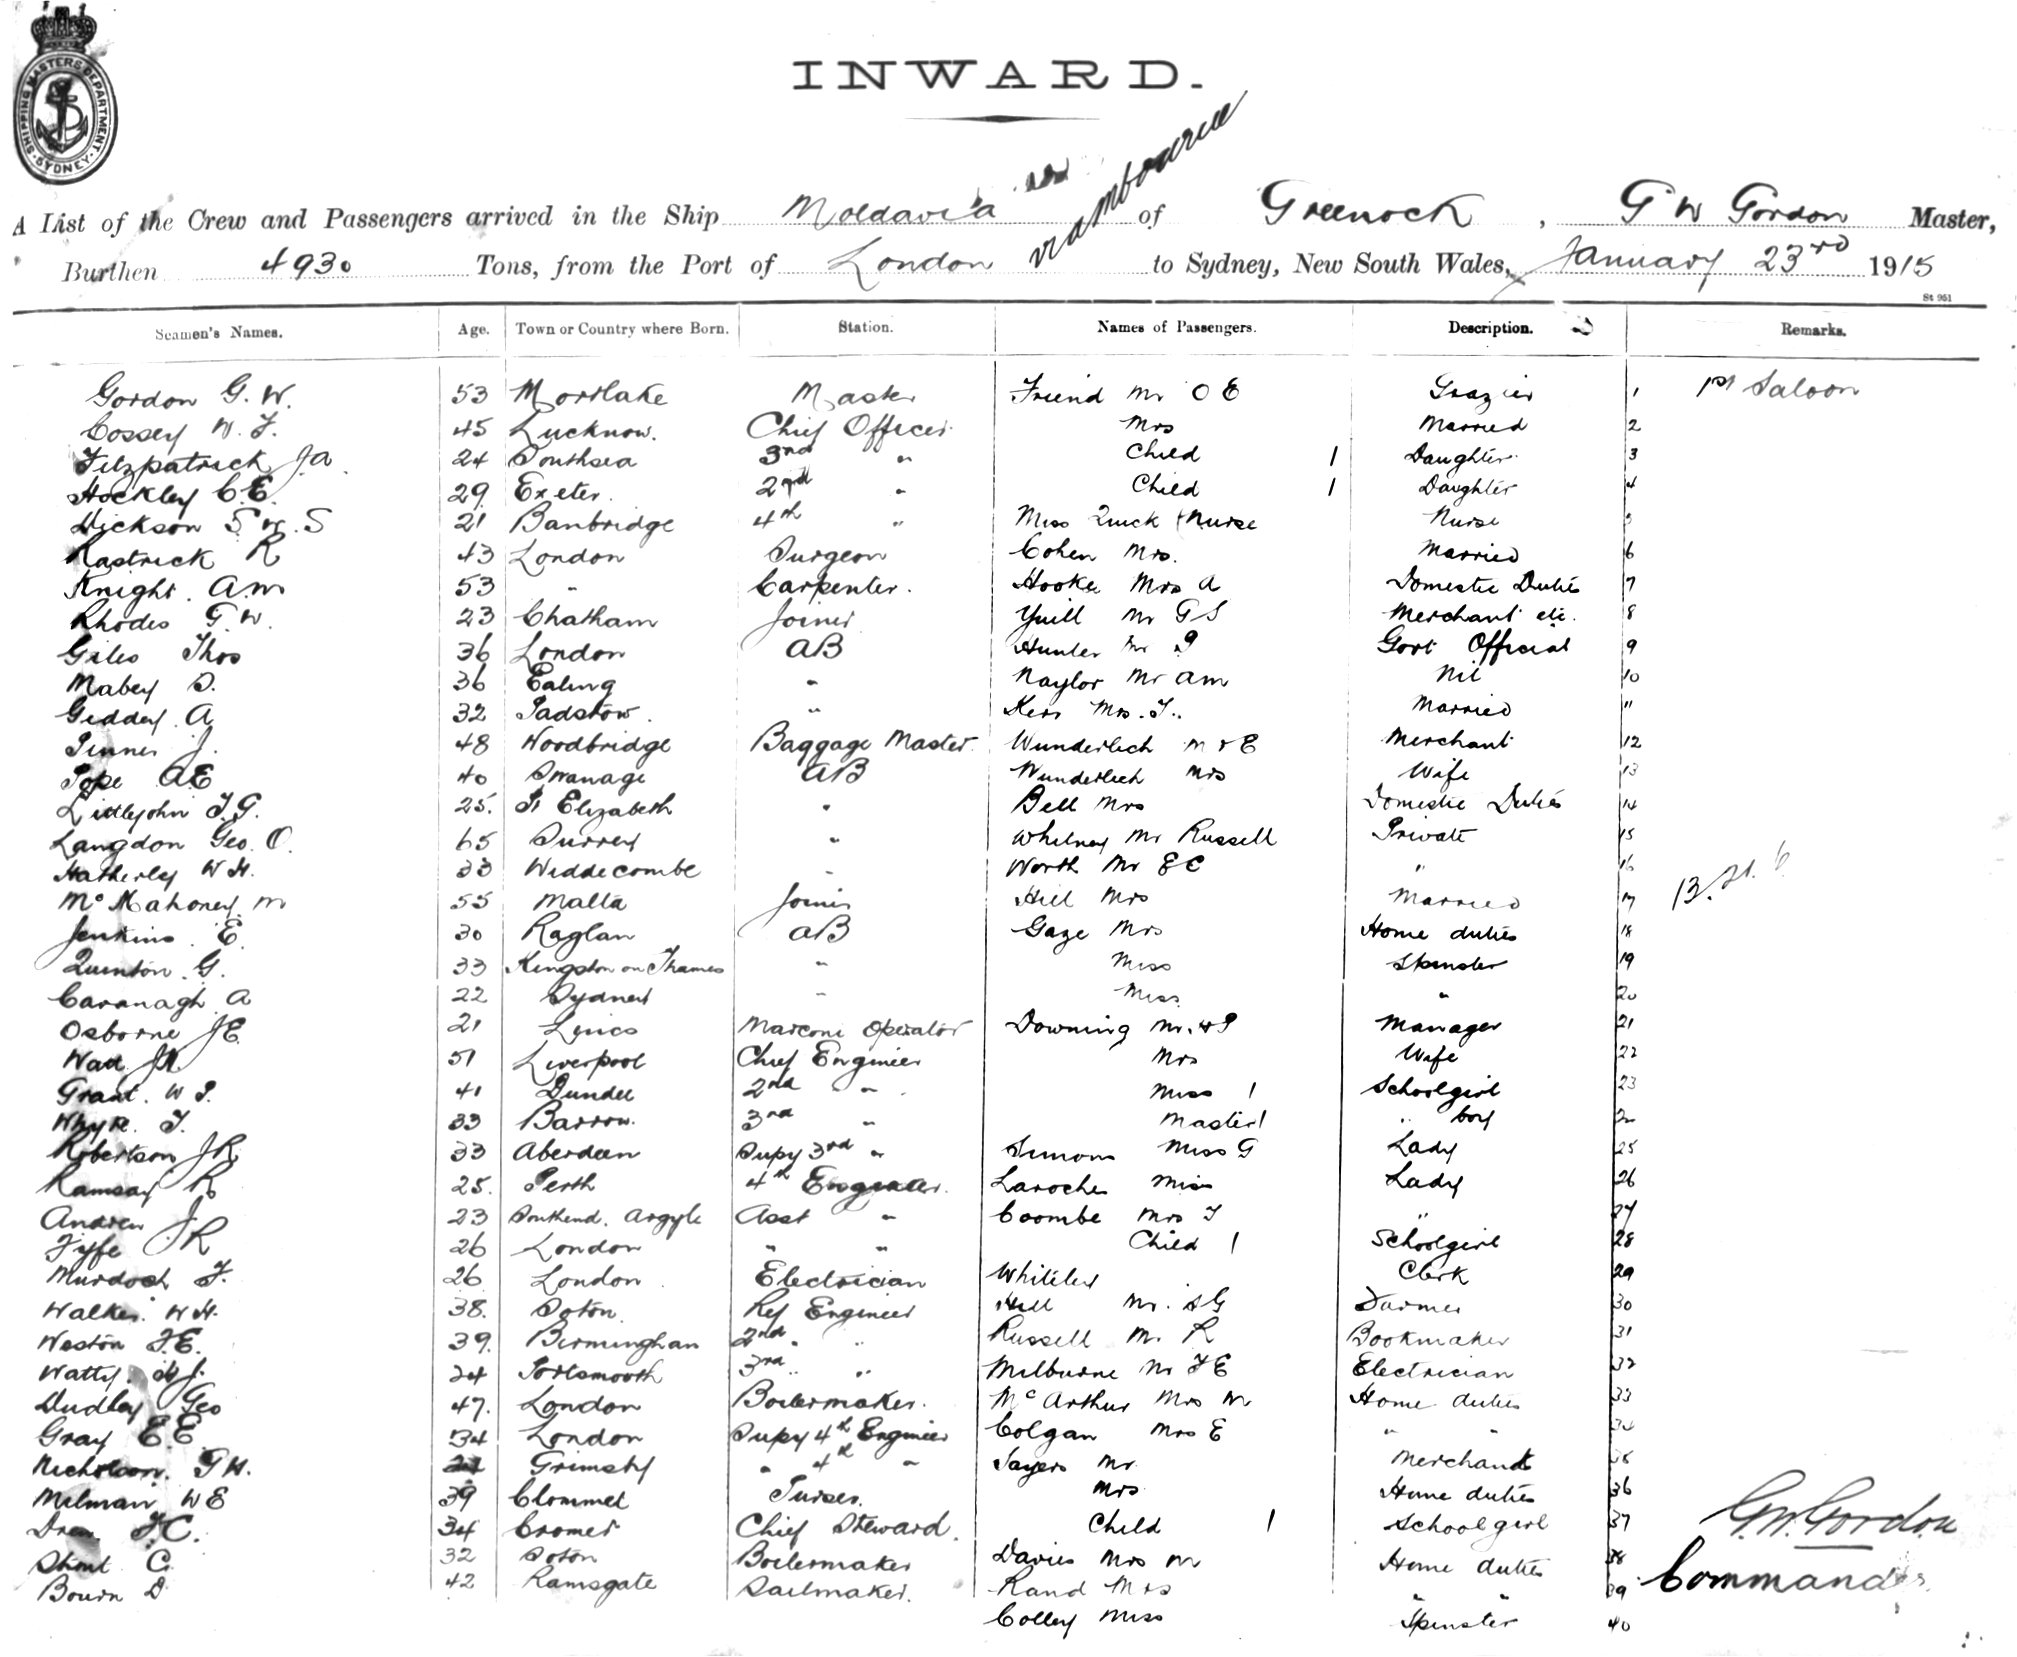 SHIPPING MASTERS DEPARTMENT · SYDNEY ·
INWARD.
via Melbourne
A List of the Crew and Passengers arrived in the Ship Moldavia of Greenock, G W Gordon Master,
Burthen 4930 Tons, from the Port of London to Sydney, New South Wales, January 23rd 1915
St 951
Seamen's Names. Age. Town or Country where Born. Station. Names of Passengers. Description. Remarks.
Gordon G. W. 53 Mortlake Master Friend Mr O E Grazier 1 1st Saloon
Cossey W. F. 45 Lucknow. Chief Officer Mrs Married 2
Fitzpatrick J A 24 Southsea 3rd " Child 1 Daughter 3
Hockley C. E. 29 Exeter. 2nd " Child 1 Daughter 4
Dickson S W. S 21 Banbridge 4th " Miss Quick (Nurse Nurse 5
Rastrick R 43 London Surgeon Cohen Mrs. Married 6
Knight. A. M 53 " Carpenter. Hooke Mrs A Domestic Duties 7
Rhodes G. W. 23 Chatham Joiner Yuill Mr G S Merchant etc. 8
Giles Thos 36 London AB Hunter Mr Govt Official 9
Mabey S. 36 Ealing " Naylor Mr A M Nil 10
Giddey. A 32 Padstow. " Kerr Mrs. T. Married 11
Pinner J. 48 Woodbridge Baggage Master Wunderlich Mr E Merchant 12
Pope A E 40 Swanage AB Wunderlich Mrs Wife 13
Littlejohn T. G. 25. Pt Elizabeth " Bell Mrs Domestic Duties 14
Langdon Geo. O. 65 Surrey " Whitney Mr Russell Private 15
Hatherley W H. 33 Widdecombe " Worth Mr E C " 16
McMahoney. M 55 Malta Joiner Hill Mrs Married 17
Jenkins. E. 30 Raglan AB Gaze Mrs Home duties 18
Quinton. G. 33 Kingston on Thames " Miss Spinster 19
Cavanagh A 22 Sydney " Miss. " 20
Osborne J E 21 Lincs Marconi Operator Downing Mr. Manager 21
51 Liverpool Chief Engineer Mrs Wife 22
Grant. W P. 41 Dundee 2nd " Miss 1 Schoolgirl 23
Whyte. T. 33 Barrow. 3rd " Master 1 " boy 24
Robertson J R 33 Aberdeen Supy 3rd " Simons Miss G Lady 25
Ramsay R 25. Perth 4th Engineer. Laroche Miss Lady 26
Andrew J. 23 Southend. Argyle Asst " Coombe Mrs T " 27
Fyfe J R 26 London " " Child 1 Schoolgirl 28
Murdoch T. 26 London Electrician Whiteley Clerk 29
Walker. W H. 38. Soton Ref Engineer Hill Mr. S G Farmer 30
Weston F. E. 39. Birmingham 2nd " " Russell Mr. R Bookmaker 31
Watty. J. 24 Portsmouth 3rd " " Milburne Mr F E Electrician 32
Dudley Geo 47. London Boilermaker. McArthur Mrs W Home duties 33
Gray E E 34 London Supy 4th Engineer Colgan Mrs E " " 34
Nicholson. G H. Grimsby " 4th " Sayers Mr. Merchant 35
Milman W E 39 Clonmel Purser. Mrs Home duties 36
Drew F. C. 34 Cromer Chief Steward. Child 1 Schoolgirl 37
Stout C. 32 Soton Boilermaker Davies Mrs M Home duties 38
Bourn D 42 Ramsgate Sailmaker. Rand Mrs " " 39
Colley Miss Spinster 40
G. W. Gordon
Commander.